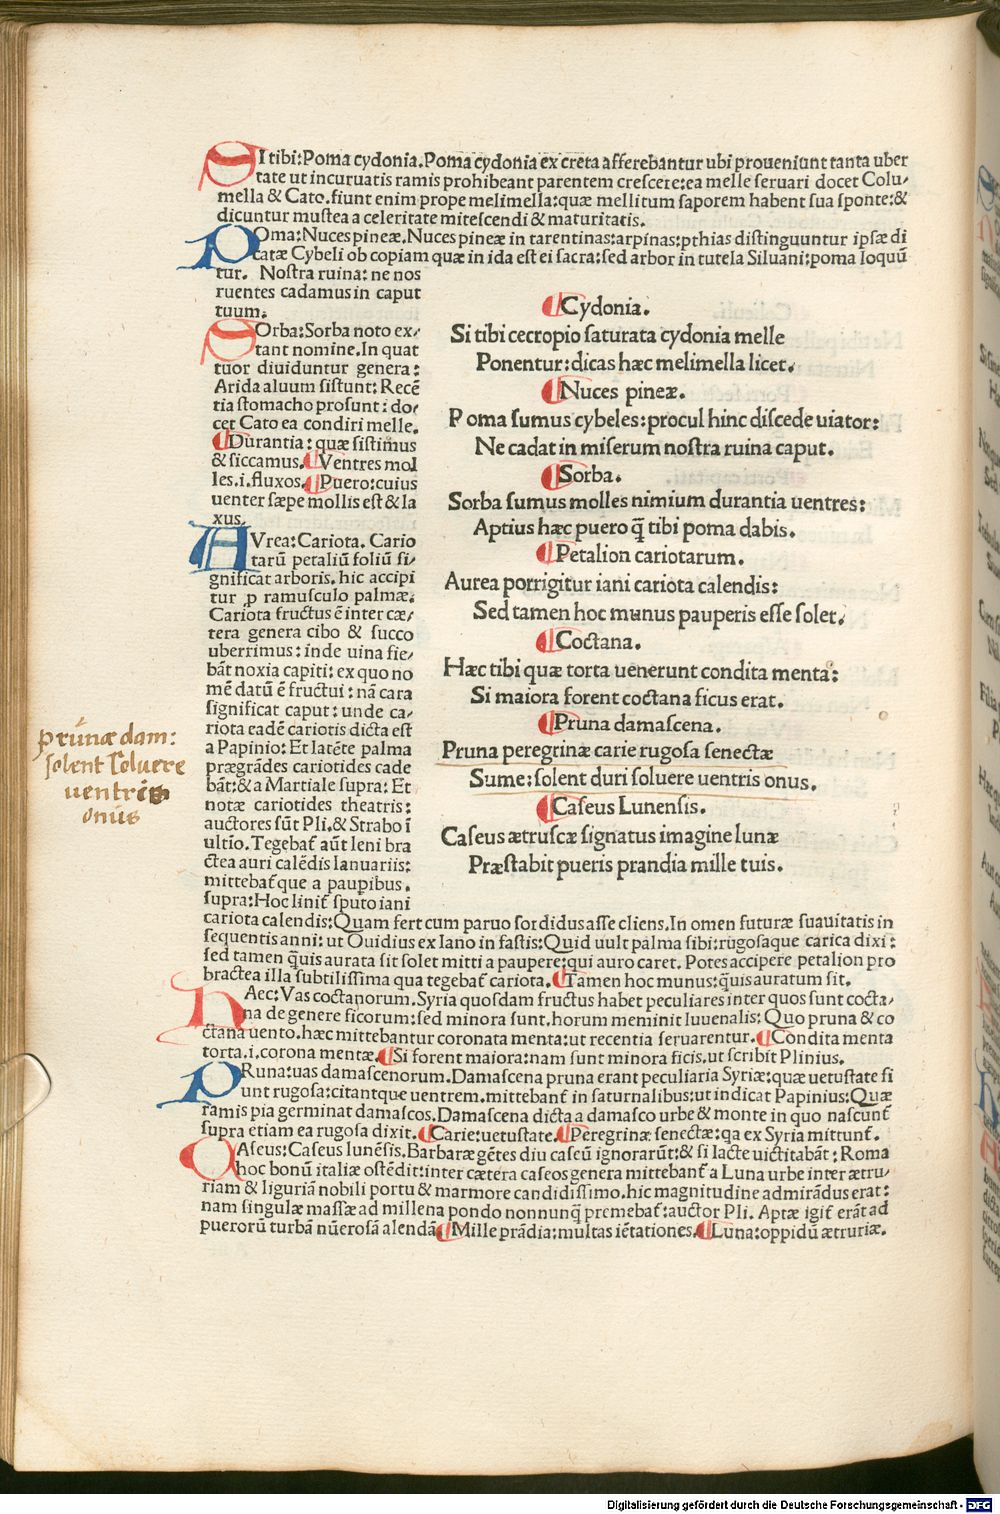 SI tibi:Poma cydonia.Poma cydonia ex creta afferebantur ubi proueniunt tanta uber
tate ut incuruatis ramis prohibeant parentem crescere:ea melle seruari docet Colu/
mella & Cato.fiunt enim prope melimella:quæ mellitum saporem habent sua sponte:&
dicuntur mustea a celeritate mitescendi & maturitatis.
POma:Nuces pineæ.Nuces pineæ in tarentinas:arpinas:pthias distinguuntur ipsæ di
catæ Cybeli ob copiam quæ in ida est ei sacra:sed arbor in tutela Siluani:poma loquū
tur. Nostra ruina: ne nos
ruentes cadamus in caput
tuum.
SOrba:Sorba noto ex/
tant nomine.In quat
tuor diuiduntur genera:
Arida aluum sistunt: Recē
tia stomacho prosunt: do/
cet Cato ea condiri melle.
Durantia: quæ sistimus
& siccamus. Ventres mol
les.i.fluxos. Puero:cuius
uenter sæpe mollis est & la
xus.
AVrea:Cariota. Cario
tarū petaliū foliū si/
gnificat arboris. hic accipi
tur p ramusculo palmæ.
Cariota fructus ē inter cæ/
tera genera cibo & succo
uberrimus: inde uina fie/
bāt noxia capiti: ex quo no
mē datū ē fructui: nā cara
significat caput: unde ca/
riota eadē cariotis dicta est
a Papinio: Et latēte palma
prægrādes cariotides cade
bāt:& a Martiale supra: Et
notæ cariotides theatris:
auctores sūt Pli.& Strabo ī
ultio. Tegebat̄ aūt leni bra
ctea auri calēdis Ianuariis:
mittebat̄que a paupibus.
supra:Hoc linit̄ sputo iani
cariota calendis:Quam fert cum paruo sordidus asse cliens.In omen futuræ suauitatis in
sequentis anni: ut Ouidius ex Iano in fastis:Quid uult palma sibi:rugosaque carica dixi:
sed tamen q̄uis aurata sit solet mitti a paupere:qui auro caret. Potes accipere petalion pro
bractea illa subtilissima qua tegebat̄ cariota. Tamen hoc munus: q̄uis auratum sit.
HAec: Vas coctanorum. Syria quosdam fructus habet peculiares inter quos sunt cocta/
na de genere ficorum:sed minora sunt.horum meminit Iuuenalis: Quo pruna & co
ctana uento.hæc mittebantur coronata menta:ut recentia seruarentur. Condita menta
torta.i.corona mentæ. Si forent maiora:nam sunt minora ficis.ut scribit Plinius.
PRuna:uas damascenorum.Damascena pruna erant peculiaria Syriæ:quæ uetustate si
unt rugosa:citantque uentrem.mittebant̄ in saturnalibus:ut indicat Papinius:Quæ
ramis pia germinat damascos.Damascena dicta a damasco urbe & monte in quo nascunt̄
supra etiam ea rugosa dixit. Carie:uetustate. Peregrinæ senectæ:qa ex Syria mittunt̄.
CAseus: Caseus lunēsis.Barbaræ gētes diu caseū ignorarūt:& si lacte uictitabāt: Roma
hoc bonū italiæ ostēdit:inter cætera caseos genera mittebant̄ a Luna urbe inter ætru/
riam & liguriā nobili portu & marmore candidissimo.hic magnitudine admirādus erat:
nam singulæ massæ ad millena pondo nonnunq̄ premebat̄:auctor Pli. Aptæ igit̄ erāt ad
puerorū turbā nūerosā alendā. Mille prādia:multas iētationes. Luna:oppidū ætruriæ.
Cydonia.
Si tibi cecropio saturata cydonia melle
Ponentur: dicas hæc melimella licet.
Nuces pineæ.
Poma sumus cybeles:procul hinc discede uiator:
Ne cadat in miserum nostra ruina caput.
Sorba.
Sorba sumus molles nimium durantia uentres:
Aptius hæc puero q̄ tibi poma dabis.
Petalion cariotarum.
Aurea porrigitur iani cariota calendis:
Sed tamen hoc munus pauperis esse solet.
Coctana.
Hæc tibi quæ torta uenerunt condita menta:
Si maiora forent coctana ficus erat.
Pruna damascena.
Pruna peregrinæ carie rugosa senectæ
Sume:solent duri soluere uentris onus.
Caseus Lunensis.
Caseus ætruscæ signatus imagine lunæ
Præstabit pueris prandia mille tuis.
prunæ dam:
solent soluere
ventris
onus
Digitalisierung gefördert durch die Deutsche Forschungsgemeinschaft - DFG